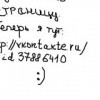 страницу
Теперь я тут:
p://vkontakte.ru/
id 37886410
:)